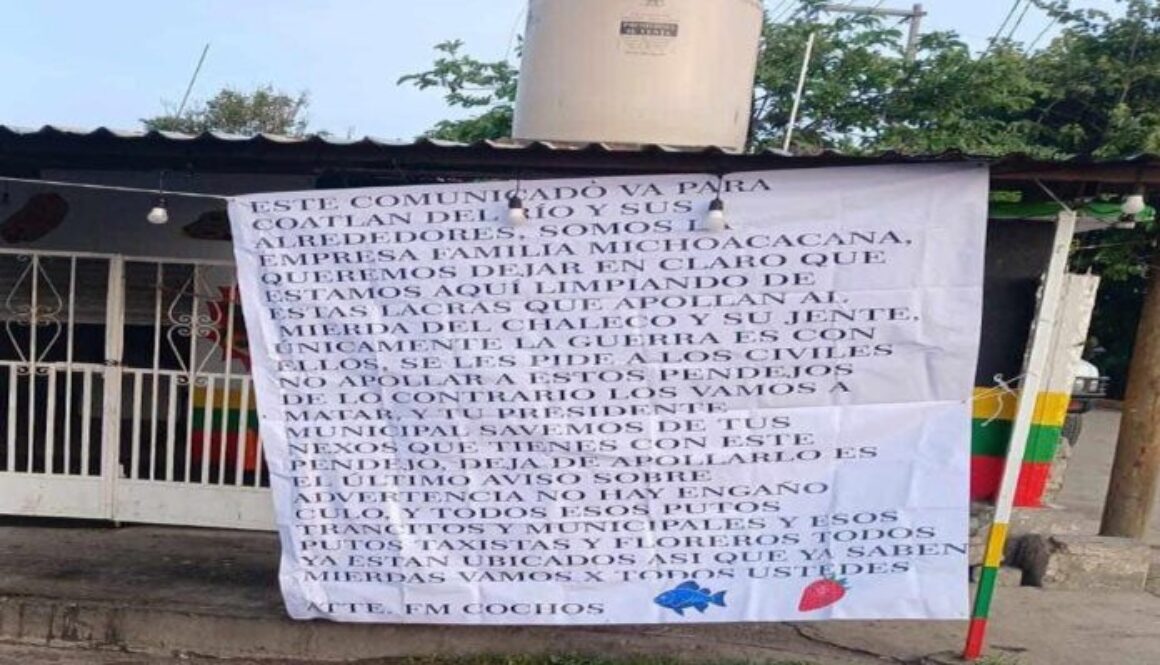 ESTE COMUNICADO VA PARA
COATLAN DEL RÍO Y SUS
ALREDEDORES, SOMOS LA
EMPRESA FAMILIA MICHOACACANA,
QUEREMOS DEJAR EN CLARO QUE
ESTAMOS AQUÍ LIMPIANDO DE
ESTAS LACRAS QUE APOLLAN AL
MIERDA DEL CHALECO Y SU JENTE,
ÚNICAMENTE LA GUERRA ES CON
ELLOS, SE LES PIDE A LOS CIVILES
NO APOLLAR A ESTOS PENDEJOS
DE LO CONTRARIO LOS VAMOS A
MATAR, Y TU PRESIDENTE
MUNICIPAL SAVEMOS DE TUS
NEXOS QUE TIENES CON ESTE
PENDEJO, DEJA DE APOLLARLO ES
EL ÚLTIMO AVISO SOBRE
ADVERTENCIA NO HAY ENGAÑO
CULO, Y TODOS ESOS PUTOS
TRANCITOS Y MUNICIPALES Y ESOS
PUTOS TAXISTAS Y FLOREROS TODOS
YA ESTAN UBICADOS ASI QUE YA SABEN
MIERDAS VAMOS X TODOS USTEDES
ATTE. FM COCHOS